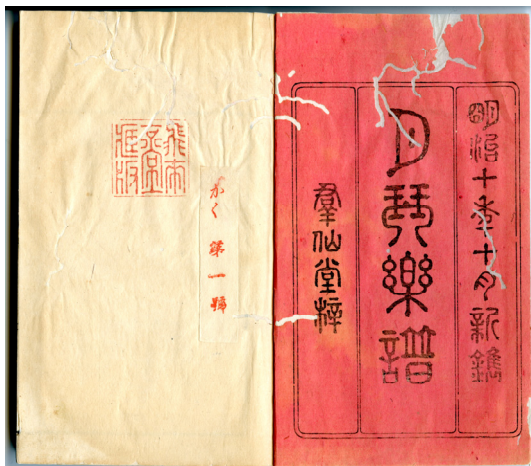 明治十年十月新鐫
月琴樂譜
羣仙堂梓
かく第一號